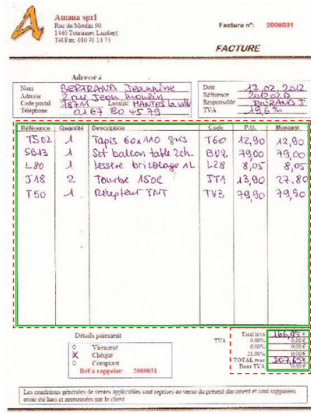 Amana sprl
Rue de Moulin 90
1440 Tourinnes Lambert
Tél/Fax: 010 70 14 71
Facture n°: 2008031
FACTURE
Adressé à
Nom BERTRAND Jeannine
Adresse 2 rue Jean moulin
Code postal 78711 Localité MANTES la ville
Téléphone 0167 80 45 79
Date 12.02.2012
Référence 201202
Responsable DURAND J
TVA 19,6%
Référence Quantité Description Code P.U. Montant
TS02 1 Tapis 60x110 T60 12,90 12,90
SB13 1 Set balcon table 2ch. BU2 79,00 79,00
L80 1 lessive bricolage 1L L28 8,05 8,05
J18 2 Tourbe 150L JT1 13,90 27,80
T50 1 Récepteur TNT TV3 79,90 79,90
Détails paiement
Virement
X Chèque
Comptant
Réf à rappeler: 2008031
Total htva
TVA 0.00% 0.00 €
6.00% 0.00 €
21.00% 0.00 €
TOTAL 207,65
Dont TVA 0.00 €
Les conditions générales de ventes applicables sont reprises au verso du présent document et sont supposées
avoir été lues et approuvées par le client